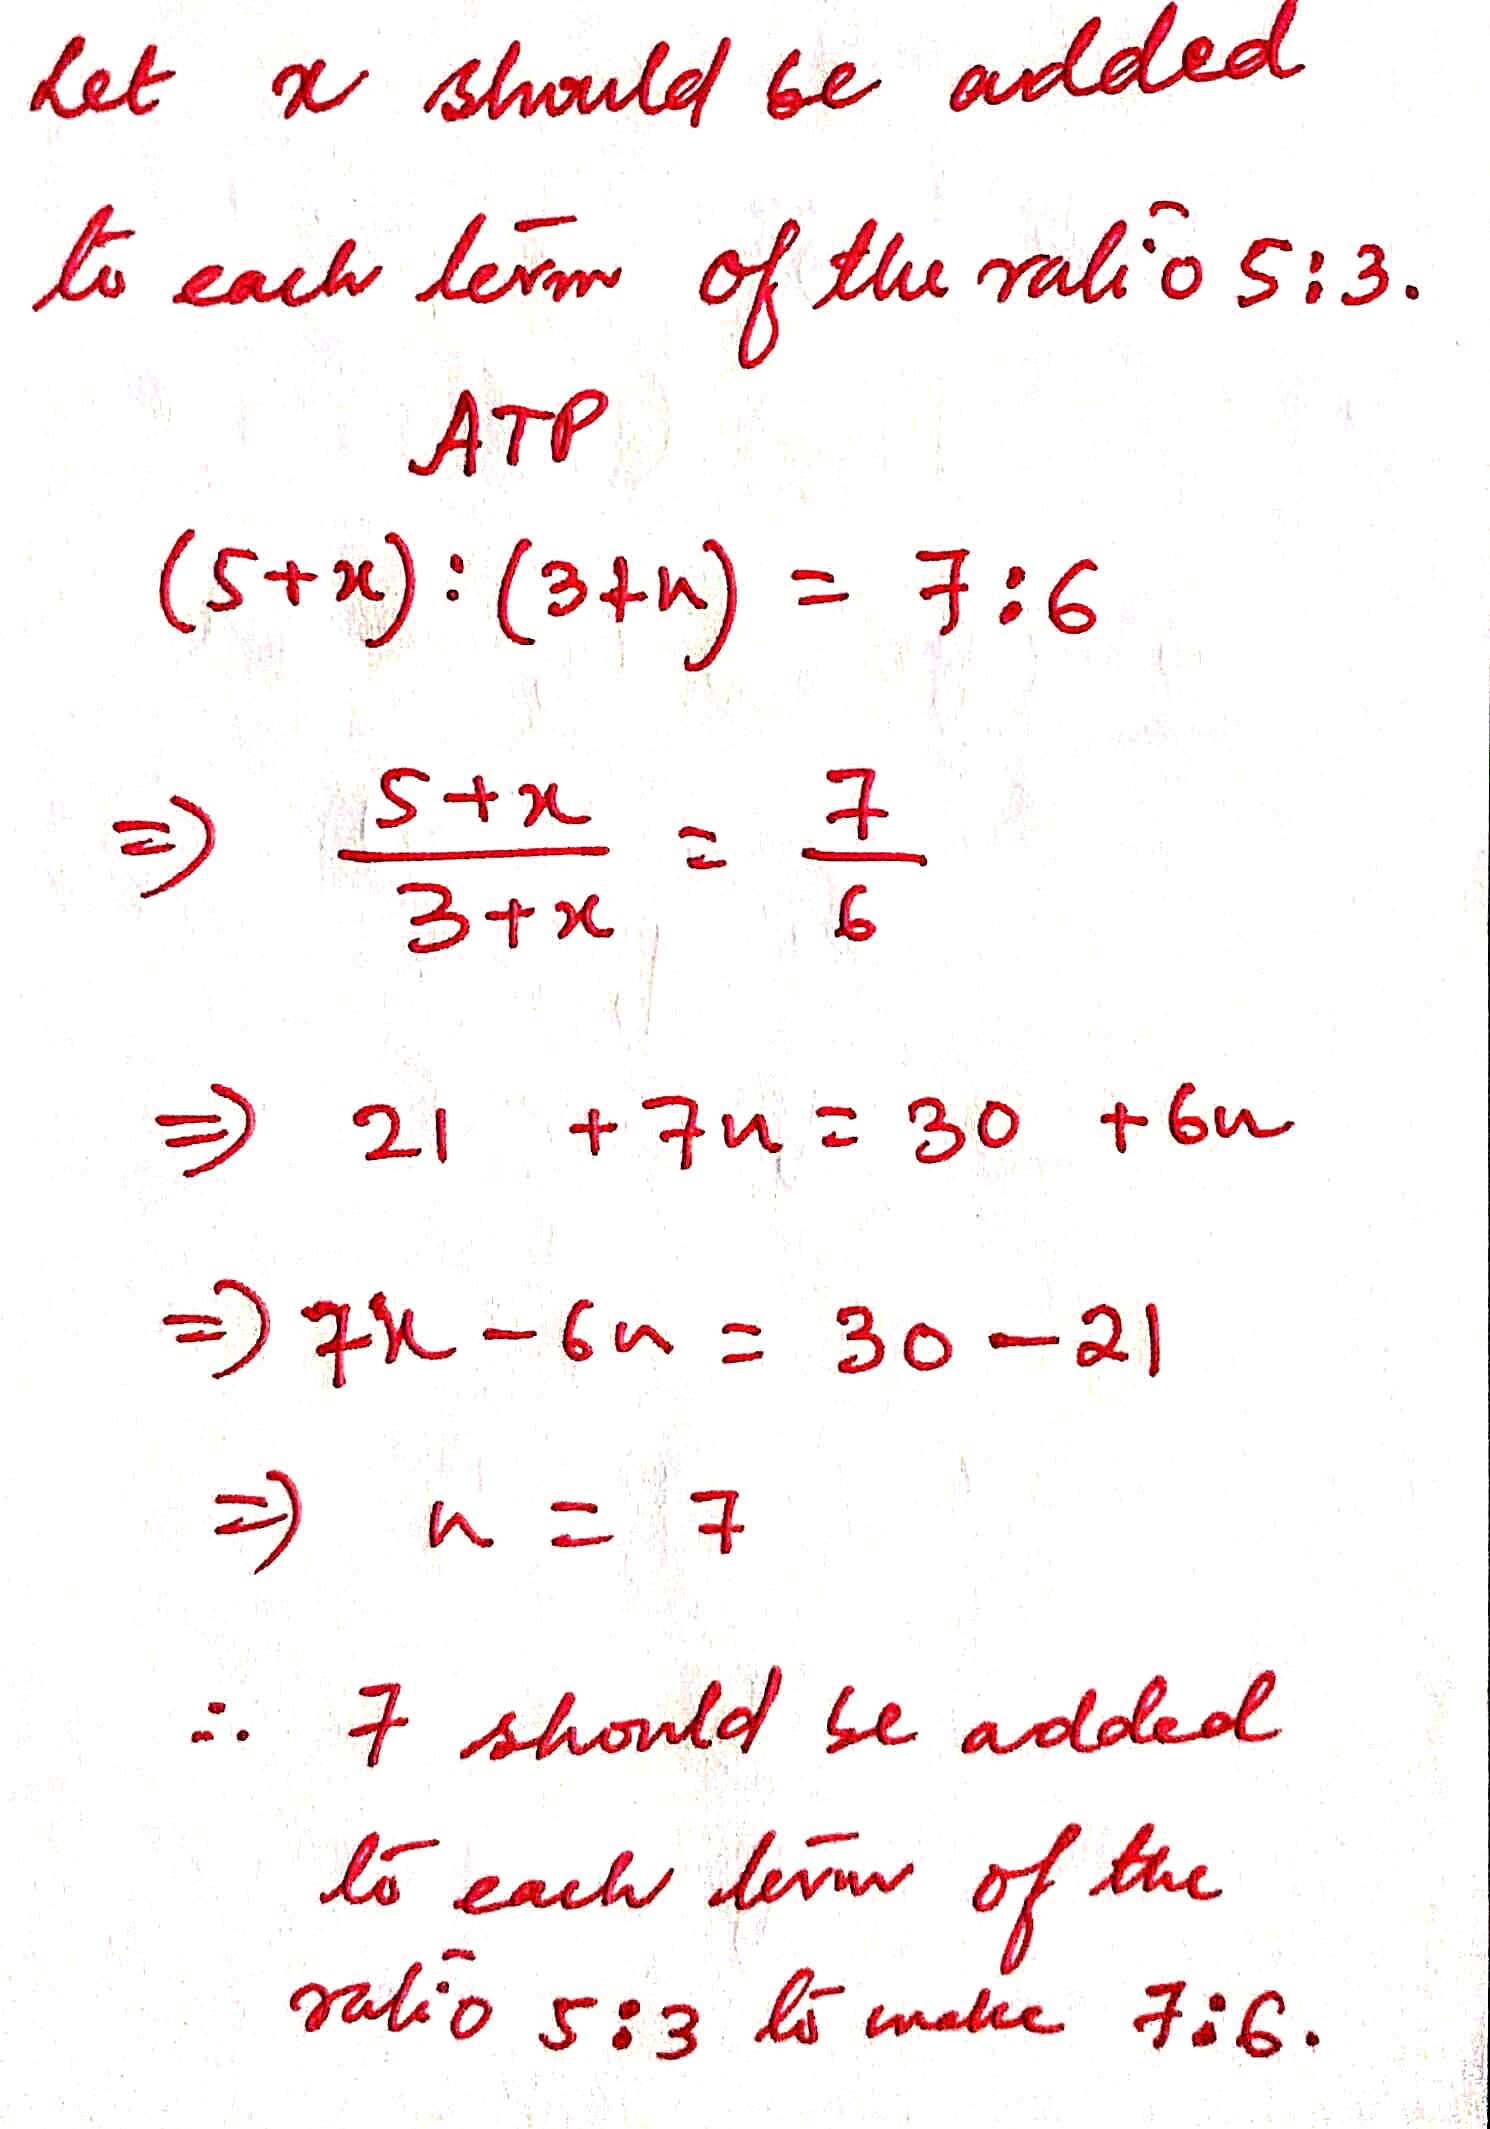 Let x should be added
to each term of the ratio 5:3.
ATP
(5+x):(3+x) = 7:6
=> 5+x / 3+x = 7 / 6
=> 21 +7x = 30 +6x
=> 7x - 6x = 30 - 21
=> x = 7
∴ 7 should be added
to each term of the
ratio 5:3 to make 7:6.